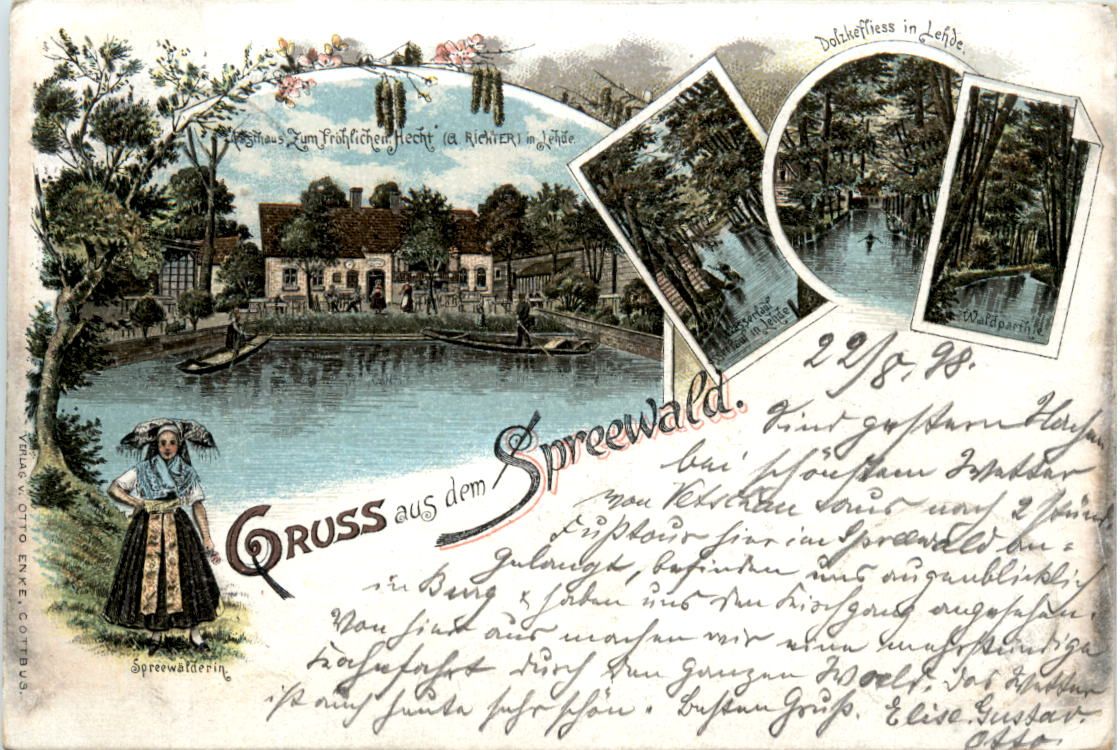 Dolzkefliess in Lehde.
Gasthaus "Zum fröhlichen Hecht" (G. RICHTER) in Lehde.
Wasserlauf
in Lehde
Waldparthie
GRUSS aus dem Spreewald.
Spreewälderin.
VERLAG V. OTTO ENKE, COTTBUS.
22/8. 98.
Sind gestern
bei schönstem Wetter
von Vetschau aus nach 2 stünd
Fußtour hier im Spreewald an=
gelangt, befinden uns augenblicklich
in Burg & haben uns den Kirchgang angesehen.
Von hier aus machen wir eine mehrstündige
Kahnfahrt durch den ganzen Wald. Das Wetter
ist auch heute sehr schön. Besten Gruß. Elise. Gustav.
Otto.